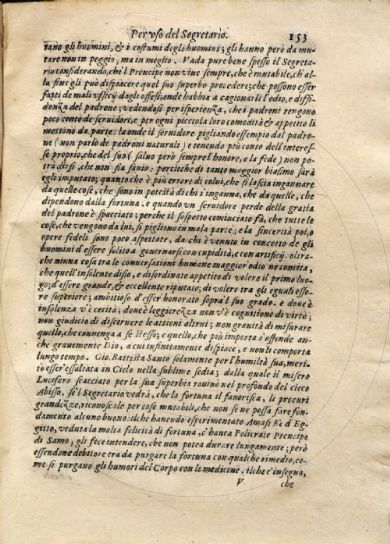 Per vso del Segretario. 153
tano gli huomini, & i costumi degli huomini; gli hanno però da mu
tare non in peggio, ma in meglio. Vada pure bene spesso il Segreta-
rio considerando, che l Prencipe non viue sempre, che è mutabile, ch'al
la fine gli può dispiacere quel suo superbo procedere; che possono esser
fatti de mali vffici dagli offesi, onde habbia a cagionarsi l'odio, e diffi-
denza del padrone; vedendosi per isperienza, che i padroni tengono
poco conto de seruidori, e per ogni picciola lor commodità & appetito li
mettono da parte: laonde il seruidore pigliando essempio dal padro-
ne (non parlo de padroni naturali) e tenendo più conto dell'interes-
se proprio, che del suo (saluo però sempre l honore, e la fede) non po-
trà dirsi, che non sia sauio; percioche di tanto maggior biasimo sarà
egli imputato, quanto che è più errore di colui, che si lascia ingannare
da quelle cose, che sono in potestà di chi inganna, che da quelle, che
dipendono dalla fortuna. e quando vn seruidore perde della gratia
del padrone è spacciato; perche il sospetto cominciato fà, che tutte le
cose, che vengono da lui, si piglino in mala parte; e la sincerità poi, o
opere fedeli sono poco aspettate, da chi è venuto in concetto de gli
huomini d'essere solito a gouernarsi con cupidità, e con artificij. oltra-
che niuna cosa tra le conuersationi humane maggior odio ne concita,
che quell'insolente disio, e disordinato appetito di volere il primo luo-
go; d'essere grande, & eccellente riputato; di volere tra gli eguali esse-
re superiore; ambitioso d'esser honorato sopra'l suo grado. e doue è
insolenza v'è cecità; doue è leggierezza non v'è cognitione di virtù;
non giudicio di discernere le attioni altrui; non grauità di misurare
quello, che conuenga a se stesso; e quello, che più importa s'offende an-
che grauemente Dio, a cui infinitamente dispiace, e non li comporta
lungo tempo. Gio. Battista Santo solamente per l'humiltà sua, meri-
tò esser essaltato in Cielo nella sublime sedia; dalla quale il misero
Lucifero scacciato per la sua superbia rouinò nel profondo del cieco
Abisso. se'l Segretario vedrà, che la fortuna il fauorisca, li procuri
grandezze, riconoscale per cose mutabili, che non se ne possa fare fon-
damento alcuno buono: ilche hauendo esperimentato Amasi Rè d'Eg-
gitto, veduta la molta felicità di fortuna, c'hauea Policrate Prencipe
di Samo; gli fece intendere, che non potea durare lungamente; però
essendone debitore era da purgare la fortuna con qualche rimedio, co-
me si purgano gli humori del Corpo con le medicine. ilche c'insegna,
V che